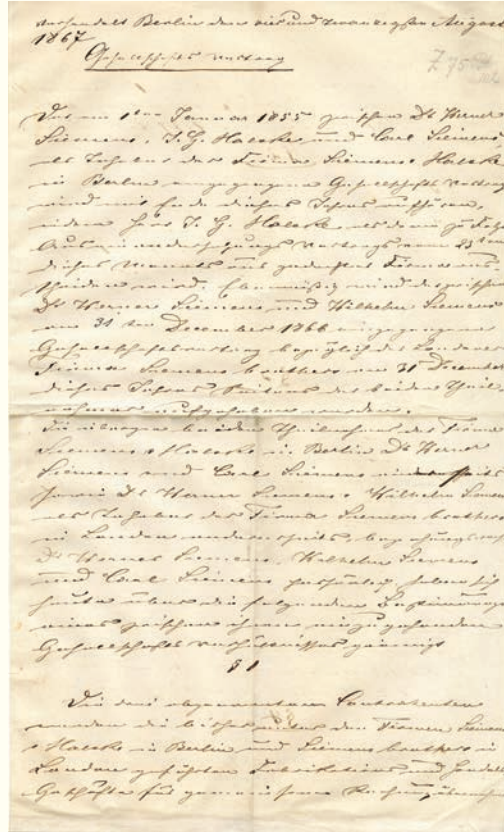 Verhandelt Berlin den vier und zwanzigsten August
1867
Gesellschafts vertrag
Z 75
Der am 1ten Januar 1855 zwischen Dr Werner
Siemens, J. G. Halske und Carl Siemens
als Inhaber der Firma Siemens & Halske
in Berlin eingegangene Gesellschafts vertrag
wird mit Ende dieses Jahres aufhören,
indem Herr J. G. Halske als dann zu Folge
Auseinandersetzungs Vertrags vom 23ten
dieses Monats aus gedachter Firma aus
scheiden wird. Ebenmäßig wird der zwischen
Dr Werner Siemens und Wilhelm Siemens
am 31 ten December 1866 eingegangene
Gesellschaftsvertrag bezüglich der Londoner
Firma Siemens brothers am 31 December
dieses Jahres Seitens der beiden Theil-
nehmer aufgehoben werden.
Die übrigen beiden Theilnehmer der Firma
Siemens & Halske in Berlin Dr Werner
Siemens und Carl Siemens
sowie Dr Werner Siemens & Wilhelm Siemens
als Inhaber der Firma Siemens brothers
in London andererseits, beziehungsweise
Dr Werner Siemens, Wilhelm Siemens
und Carl Siemens haben sich
heute über die folgenden Bestimmungen
eines zwischen ihnen einzugehenden
Gesellschafts verhältnisses geeinigt
§ 1
Die drei obgenannten Contrahenten
werden die bisher unter den Firmen Siemens
& Halske in Berlin und Siemens brothers in
London geführten Fabrikations und Handels
Geschäfte für gemeinsame Rechnung